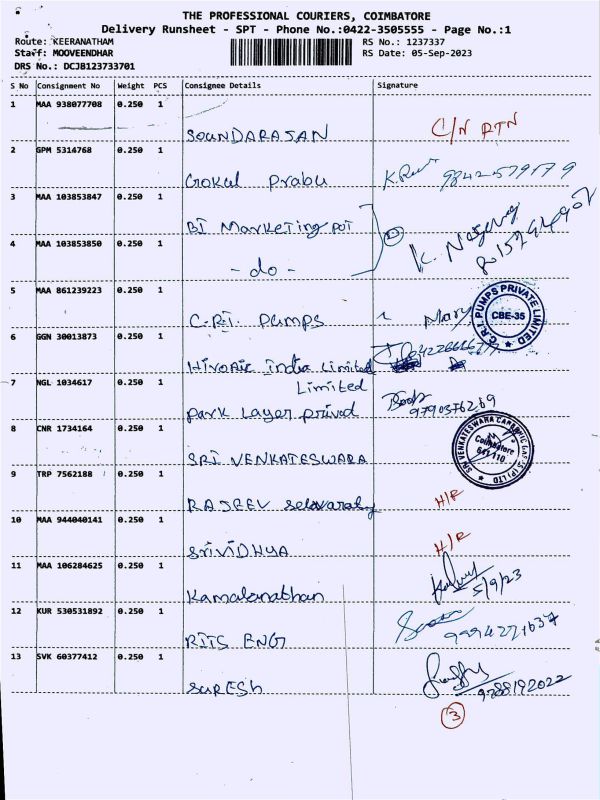 THE PROFESSIONAL COURIERS, COIMBATORE
Delivery Runsheet - SPT - Phone No.:0422-3505555 - Page No.:1
Route: KEERANATHAM RS No.: 1237337
Staff: MOOVEENDHAR RS Date: 05-Sep-2023
DRS No.: DCJB123733701
S No Consignment No Weight PCS Consignee Details Signature
1 MAA 938077708 0.250 1
SOUNDARAJAN C/N RTN
2 GPM 5314768 0.250 1
Gokul Prabu
3 MAA 103853847 0.250 1
BI Marketing pvt
4 MAA 103853850 0.250 1
- do -
5 MAA 861239223 0.250 1
C.R.I. Pumps Mary
C.R.I. PUMPS PRIVATE LIMITED
CBE-35
6 GGN 30013873 0.250 1
India Limited
Limited
7 NGL 1034617 0.250 1
Park Layer
8 CNR 1734164 0.250 1
SRI VENKATESWARA
Coimbatore
641 110
9 TRP 7562188 0.250 1
RAJEEV H/R
10 MAA 944040141 0.250 1
SRIVIDHYA H/R
11 MAA 106284625 0.250 1
Kamalanathan 5/9/23
12 KUR 530531892 0.250 1
RITS ENGI
13 SVK 60377412 0.250 1
SURESH 9788192022
3